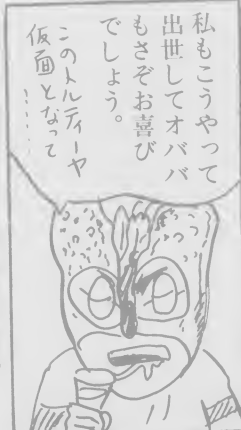 私もこうやって
出世してオババ
もさぞお喜び
でしょう。
このトルティーヤ
仮面となって
……